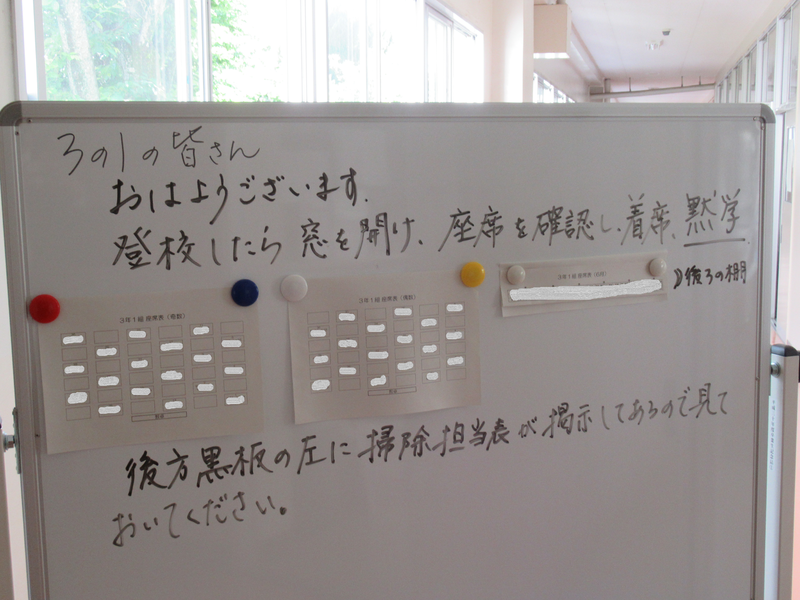 3の1の皆さん
おはようございます.
登校したら窓を開け、座席を確認し、着席、黙学
後ろの棚
3年1組 座席表
3年1組 座席表
3年1組 座席表
後方黒板の左に掃除担当表が掲示してあるので見て
おいてください。